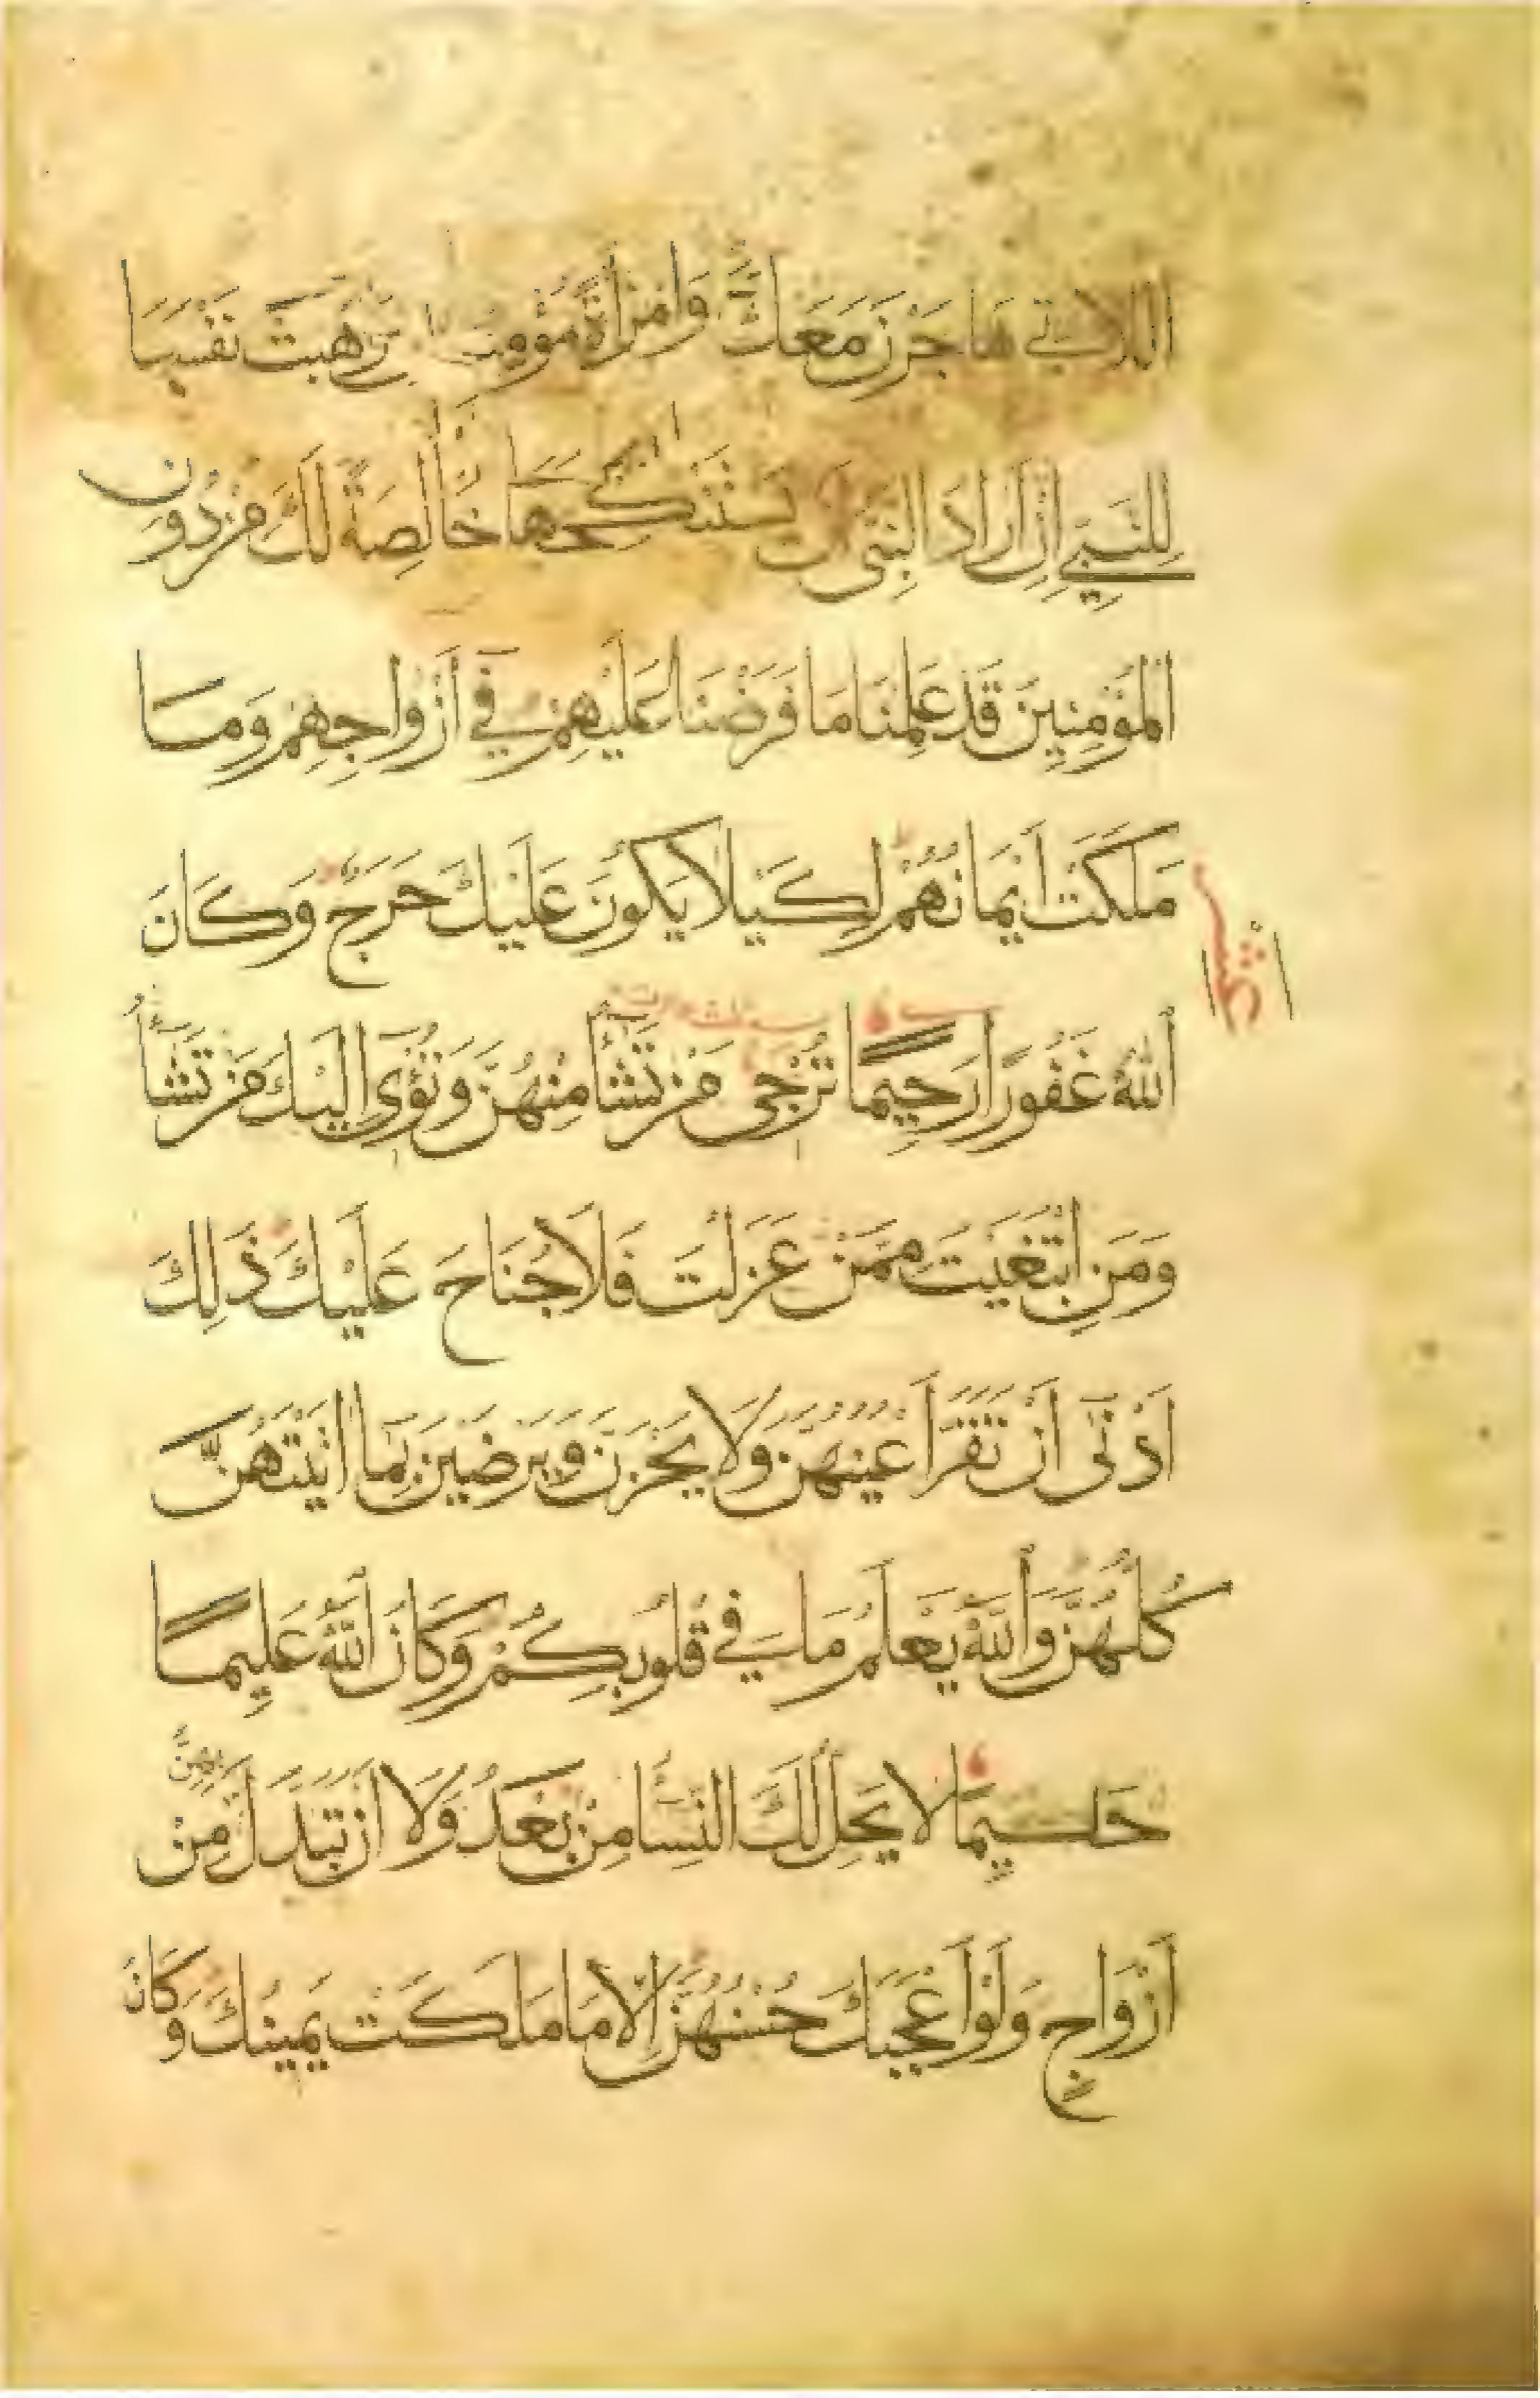 اللاتي هَاجَرْنَ مَعَكَ وَامْرَأَةً مُؤْمِنَةً وَهَبَتْ نَفْسَهَا
لِلنَّبِيِّ إِنْ أَرَادَ النَّبِيُّ أَنْ يَسْتَنْكِحَهَا خَالِصَةً لَكَ مِنْ دُونِ
الْمُؤْمِنِينَ قَدْ عَلِمْنَا مَا فَرَضْنَا عَلَيْهِمْ فِي أَزْوَاجِهِمْ وَمَا
مَلَكَتْ أَيْمَانُهُمْ لِكَيْلَا يَكُونَ عَلَيْكَ حَرَجٌ وَكَانَ
اللَّهُ غَفُورًا رَحِيمًا تُرْجِي مَنْ تَشَاءُ مِنْهُنَّ وَتُؤْوِي إِلَيْكَ مَنْ تَشَاءُ
وَمَنِ ابْتَغَيْتَ مِمَّنْ عَزَلْتَ فَلَا جُنَاحَ عَلَيْكَ ذَلِكَ
أَدْنَى أَنْ تَقَرَّ أَعْيُنُهُنَّ وَلَا يَحْزَنَّ وَيَرْضَيْنَ بِمَا اتَيْتَهُنَّ
كُلُّهُنَّ وَاللَّهُ يَعْلَمُ مَا فِي قُلُوبِكُمْ وَكَانَ اللَّهُ عَلِيمًا
حَلِيمًا لَا يَحِلُّ لَكَ النِّسَاءُ مِنْ بَعْدُ وَلَا أَنْ تَبَدَّلَ بِهِنَّ مِنْ
أَزْوَاجٍ وَلَوْ أَعْجَبَكَ حُسْنُهُنَّ إِلَّا مَا مَلَكَتْ يَمِينُكَ وَكَانَ